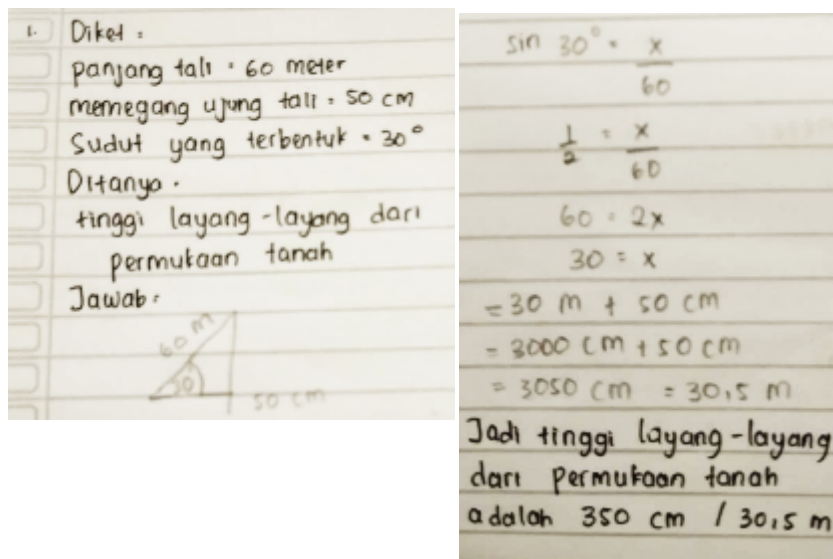 1. Diket :
panjang tali = 60 meter
memegang ujung tali = 50 cm
Sudut yang terbentuk = 30°
Ditanya :
tinggi layang-layang dari
permukaan tanah
Jawab :
60 m
30°
50 cm
sin 30° = x/60
1/2 = x/60
60 = 2x
30 = x
= 30 m + 50 cm
= 3000 cm + 50 cm
= 3050 cm = 30,5 m
Jadi tinggi layang-layang
dari permukaan tanah
adalah 350 cm / 30,5 m